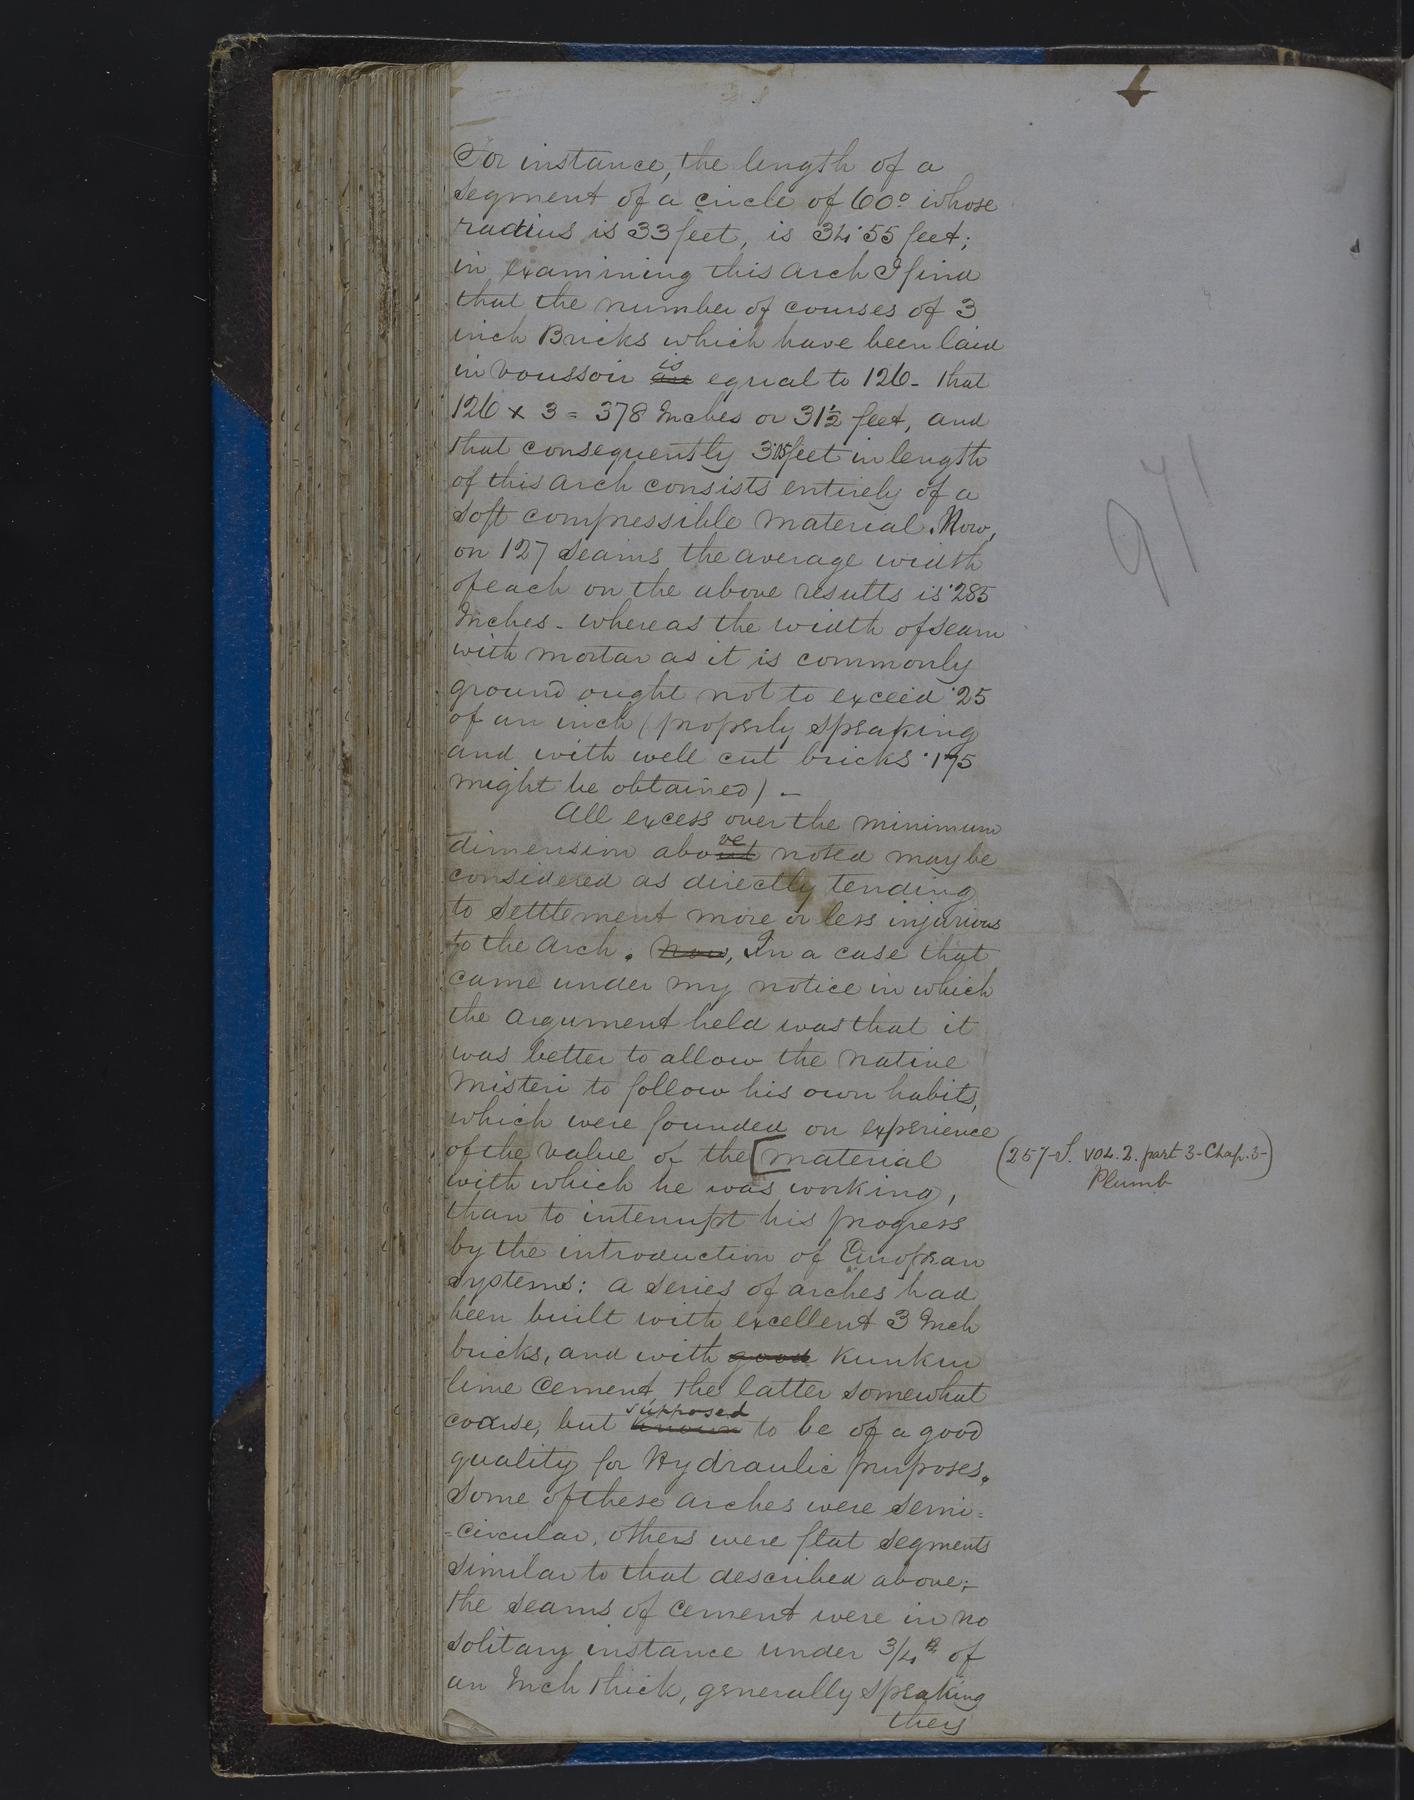 For instance, the length of a
segment of a circle of 60° whose
radius is 33 feet, is 34·55 feet;
in examining this arch I find
that the number of courses of 3
inch Bricks which have been laid
in voussoir are is equal to 126 - that
126 x 3 = 378 Inches or 31½ feet, and
that consequently 3·05 feet in length
of this arch consists entirely of a
soft compressible material. Now,
on 127 seams the average width
of each on the above results is ·285
Inches - whereas the width of seam
with mortar as it is commonly
ground ought not to exceed ·25
of an inch (properly speaking
and with well cut bricks ·175
might be obtained) -
All excess over the minimum
dimension about ve noted may be
considered as directly tending
to settlement more or less injurious
to the arch. Now, In a case that
came under my notice in which
the argument held was that it
was better to allow the native
Misteri to follow his own habits,
which were founded on experience
of the value of the [material
(257-S. VOL. 2. part 3-Chap. 3-)
Plumb
with which he was working,
than to interrupt his progress
by the introduction of European
systems: a series of arches had
been built with excellent 3 Inch
bricks, and with good Kunkur
lime Cement, the latter somewhat
coarse, but known supposed to be of a good
quality for Hydraulic purposes.
Some of these arches were semi-
-circular, others were flat segments
similar to that described above;-
the seams of Cement were in no
solitary instance under 3/4th of
an Inch thick, generally speaking
they
91